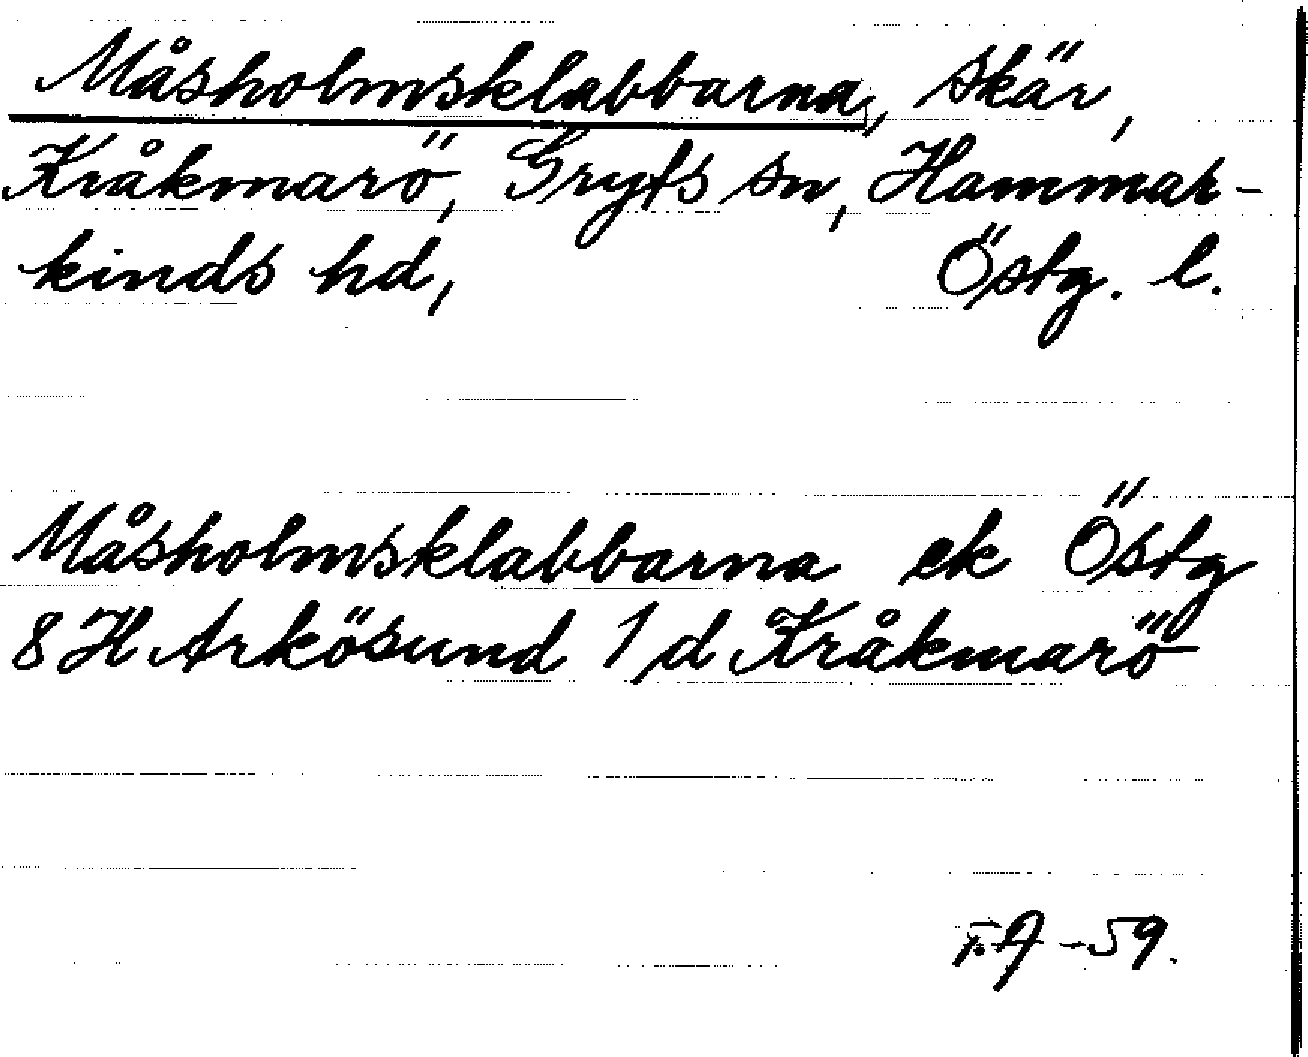 Måsholmsklabbarna, skär,
Kråkmarö, Gryts sn, Hammar-
kinds hd, Östg. l.
Måsholmsklabbarna ek Östg
8 H Arkösund 1/d Kråkmarö
-59.